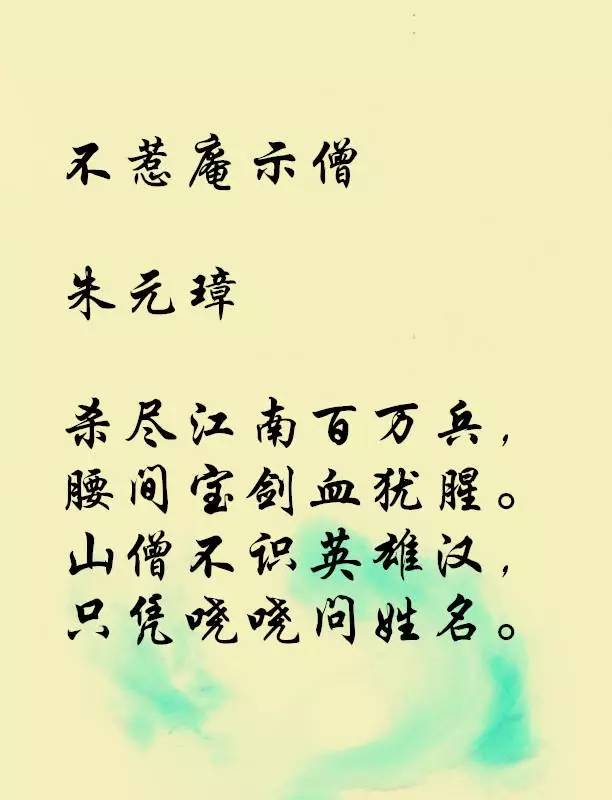 不惹庵示僧
朱元璋
杀尽江南百万兵，
腰间宝剑血犹腥。
山僧不识英雄汉，
只凭哓哓问姓名。